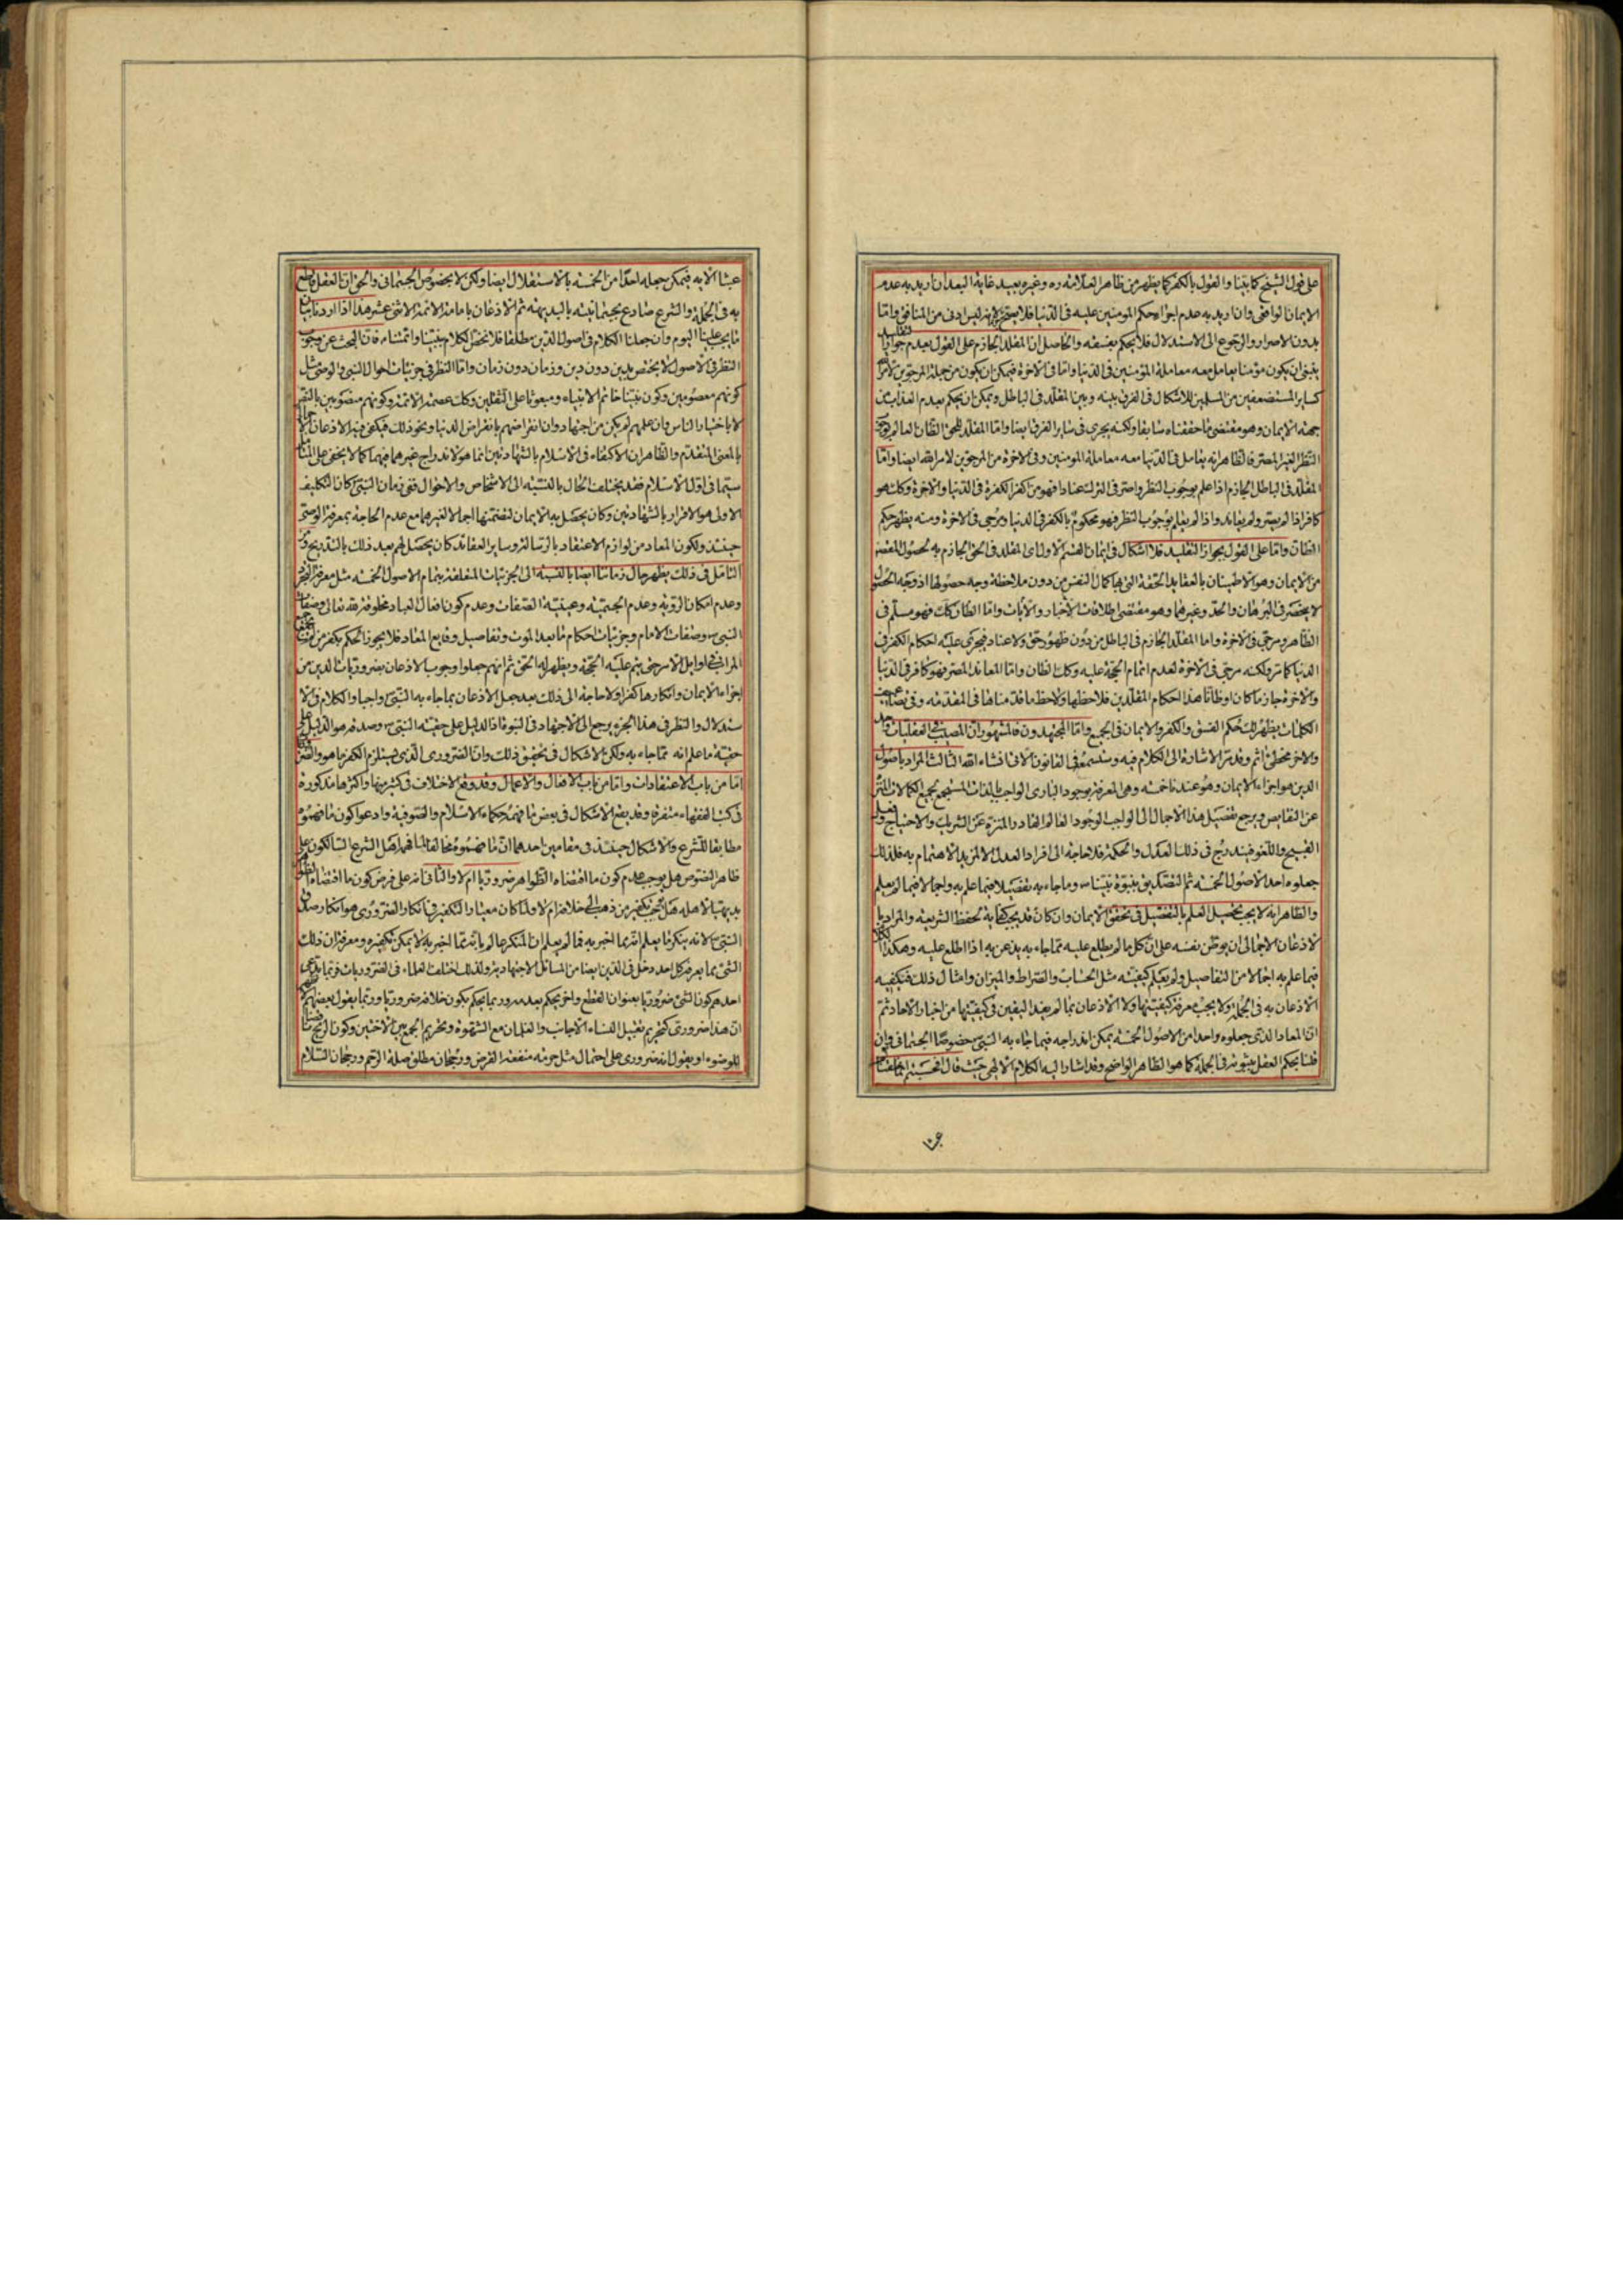 على قول الشيخ كما بينا والقول بالكفر كما يظهر من ظاهر العلامة ره وغيره بعيد غاية البعد ان اريد به عدم
الايمان الواقعى وان اريد به عدم اجراء حكم المومنين عليه فى الدنيا فلا يستحق لانه ليس ادنى من المنافق واما
بدون الاصرار والرجوع الى الاستدلال فلا يحكم بفسقه والحاصل ان المقلد الجازم على القول بعدم جواز التقليد
ينبغى ان يكون مؤمنا يعامل معه معاملة المؤمنين فى الدنيا واما فى الاخرة فيمكن ان يكون من جملة المرجوين لامر الله
كساير المستضعفين من المسلمين للاشكال فى الفرق بينه وبين المقلد فى الباطل ويمكن ان يحكم بعدم العذاب من
جهة الايمان وهو مقتضى ما حققناه سابقا ولكنه يجرى فى ساير الفرق ايضا واما المقلد للحق الظان العالم بوجوب
النظر الغير المصر فالظاهر انه يعامل فى الدنيا معه معاملة المومنين وفى الاخرة من المرجوين لامر الله ايضا واما
المقلد فى الباطل الجازم اذا علم بوجوب النظر واصر فى الترك عنادا فهو من اكفر الكفرة فى الدنيا والاخرة وكك هو
كافر اذا لم يصر ولم يعاند واذا لم يعلم بوجوب النظر فهو محكوم بالكفر فى الدنيا ويرجى فى الاخرة ومنه يظهر حكم
الظان واما على القول بجواز التقليد فلا اشكال فى ايمان القسم الاول اى المقلد فى الحق الجازم به لحصول المقصود
من الايمان وهو الاطمينان بالعقايد الحقة التى بها كمال النفس من دون ملاحظة وجه حصولها اذ وجه الحصول
لا ينحصر فى البرهان والحد وغيرهما وهو مقتضى اطلاقات الاخبار والايات واما الظان كك فهو مسلم فى
الظاهر ومرجى فى الاخرة واما المقلد الجازم فى الباطل من دون ظهور حق ولا عناد فيجرى عليه احكام الكفر فى
الدنيا كما مر ولكنه مرجى فى الاخرة لعدم اتمام الحجة عليه وكك الظان واما المعاند المصر فهو كافر فى الدنيا
والاخرة جازما كان او ظانا هذا احكام المقلدين فلاحظها ولاحظ ما قدمناها فى المقدمة وفى
الكلمات يظهر لك حكم الفسق والكفر والايمان فى الجميع واما المجتهدون فالمشهور ان المصيب فى العقليات واحد
والاخر مخطئ اثم وقد مر الاشارة الى الكلام فيه وستسمع فى القانون الاتى انشاء الله الثالث المراد باصول
الدين هو اجزاء الايمان وهو عندنا خمسة وهى المعرفة بوجود البارى الواجب بالذات المستجمع لجميع الكمالات المنزه
عن النقايص ويرجع تفصيل هذا الاجمال الى الواجب الوجود العالم القادر المنزه عن الشريك والاحتياج وفعل
القبيح واللغو فيندرج فى ذلك العدل والحكمة فلا حاجة الى افراد العدل الا لمزيد الاهتمام به فلذلك
جعلوه احد الاصول الخمسة ثم التصديق بنبوة نبينا ص وما جاء به تفصيلا فيما علم به واجمالا فيما لم يعلم
والظاهر انه لا يجب تحصيل العلم بالتفصيل فى تحقق الايمان وان كان قد يجب كفاية لحفظ الشريعة والمراد با
لاذعان الاجمالى ان يوطن نفسه على ان كل ما لم يطلع عليه مما جاء به يذعن به اذا اطلع عليه وهكذا الكلام
فيما علم به اجمالا من التفاصيل ولم يعلم كيفيته مثل الحساب والصراط والميزان وامثال ذلك فيكفيه
الاذعان به فى الجملة ولا يجب معرفة كيفيتها ولا الاذعان بما لم يفد اليقين فى كيفيتها من اخبار الاحاد ثم
ان المعاد الذى جعلوه واحدا من الاصول الخمسة يمكن اندراجه فيما جاء به النبى ص خصوصا الجسمانى وان
قلنا بحكم العقل بثبوته فى الجملة كما هو الظاهر الواضح وقد اشار اليه الكلام الالهى حيث قال افحسبتم انما خلقناكم
عبثا الاية فيمكن جعله احدا من الخمسة بالاستقلال ايضا ولكن لا بخصوص الجسمانى والحق ان العقل قاطع
به فى الجملة والشرع صادع بجسمانيته بالبديهة ثم الاذعان بامامة الائمة الاثنى عشر هذا اذا اردنا بيان
ما يجب علينا اليوم وان جعلنا الكلام فى اصول الدين مطلقا فلا نخص الكلام بنبينا وائمتنا ع فان البحث عن وجوب
النظر فى الاصول لا يختص بدين دون دين وزمان دون زمان واما النظر فى جزئيات احوال النبى والوصى مثل
كونهم معصومين وكون نبينا خاتم الانبياء ومبعوثا على الثقلين وكك عصمة الائمة وكونهم منصوبين بالنص
لا باختيار الناس وان علمهم لم يكن من اجتهاد وان انقراضهم بانقراض الدنيا ونحو ذلك فيكفى فيه الاذعان الاجمالى
بالمعنى المتقدم والظاهر ان الاكتفاء فى الاسلام بالشهادتين انما هو لاندراج غيرهما فيهما كما لا يخفى على المتامل
سيما فى اول الاسلام فقد يختلف الحال بالنسبة الى الاشخاص والاحوال ففى زمان النبى ص كان التكليف
الاولى هو الاقرار بالشهادتين وكان يحصل به الايمان لتضمنها اجمالا لغيرهما مع عدم الحاجة بمعرفة الوصى
حينئذ ولكون المعاد من لوازم الاعتقاد بالرسالة وساير العقائد كان يحصل لهم بعد ذلك بالتدريج ومن
التامل فى ذلك يظهر حال زماننا ايضا بالنسبة الى الجزئيات المتعلقة بتمام الاصول الخمسة مثل معرفة التجرد
وعدم امكان الرؤية وعدم الجسمية وعينية الصفات وعدم كون افعال العباد مخلوقة لله تعالى وصفات
النبى ص وصفات الامام وجزئيات احكام ما بعد الموت وتفاصيل وقايع المعاد فلا يجوز الحكم بكفر من
المراتب فى اوايل الامر حتى يتم عليه الحجة ويظهر له الحق ثم انهم جعلوا وجوب الاذعان بضروريات الدين من
اجزاء الايمان وانكارها كفرا ولا حاجة الى ذلك بعد جعل الاذعان بما جاء به النبى ص واجبا والكلام فى الا
ستدلال والنظر فى هذا الجزء يرجع الى الاجتهاد فى النبوة اذ الدليل على حقية النبى ص وصدقه هو الدليل على
حقية ما علم انه مما جاء به ولكن الاشكال فى تحقيق ذلك وان الضرورى الذى يستلزم الكفر ما هو والضرورى
اما من باب الاعتقادات واما من باب الافعال والاعمال وقد وقع الاختلاف فى كثير منها واكثرها مذكورة
فى كتب الفقهاء متفرقة وقد يقع الاشكال فى بعض ما فهمه حكماء الاسلام والصوفية وادعوا كون ما فهموه
مطابقا للشرع والاشكال حينئذ فى مقامين احدهما ان ما فهموه مخالفا لما فهم اهل الشرع السالكون على
ظاهر النصوص هل يوجب عدم كون ما اقتضاه الظواهر ضروريا ام لا والثانى انه على فرض كون ما اقتضاه الظواهر
بديهيا لاهله هل يجب تكفير من ذهب الى خلافه ام لا ولما كان معيار التكفير فى انكار الضرورى هو انكار صدق
النبى ص لانه ينكر ما يعلم انه مما اخبر به فما لم يعلم ان المنكر عالم بانه مما اخبر به لا يمكن تكفيره ومعرفة ان ذلك
الشئ مما يعرفه كل احد دخل فى الدين ايضا من المسائل الاجتهادية ولذلك اختلف العلماء فى الضروريات فربما يدعى
احدهم كون الشئ ضروريا بعنوان القطع واخر يحكم بعدمه وربما يحكم بكون خلافه ضروريا وربما يقول بعضهم
ان هذا ضرورى كتحريم تقبيل النساء الاجانب والغلمان مع الشهوة وتحريم الجمع بين الاختين وكون الريح ناقضا
للوضوء او يقول انه ضرورى على احتمال مثل حرمة منفعة القرض ورجحان مطلق صلة الرحم ورجحان السلام